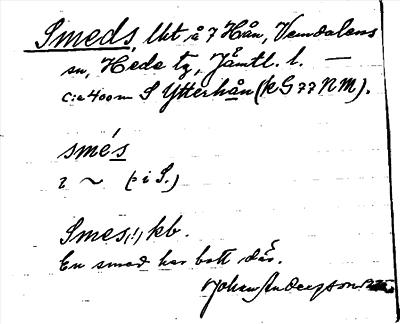 Smeds, lht å 7 Hån, Vemdalens
sn, Hede tg, Jämtl. l. —
c:a 400 m S Ytterhån (k G 77 N M).
smé's
i ~ (p i S.)
Smes(!), kb.
En smed har bott där.
Johan Anderson